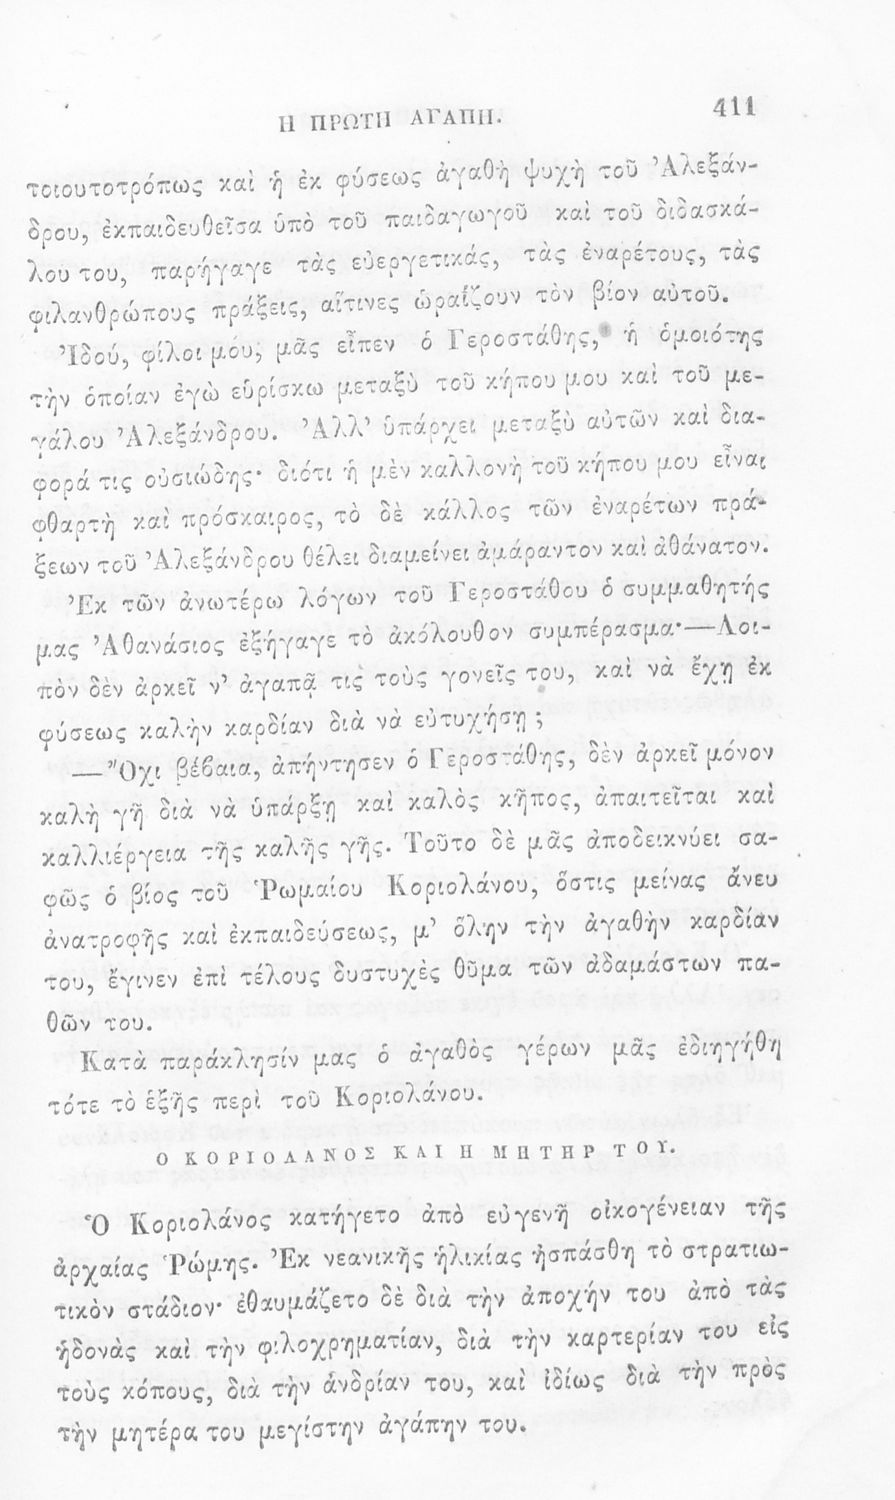 Η ΠΡΩΤΗ ΑΓΑΠΗ. 411
τοιουτοτρόπως καὶ ἡ ἐκ φύσεως ἀγαθὴ ψυχὴ τοῦ Ἀλεξάν-
δρου, ἐκπαιδευθεῖσα ὑπὸ τοῦ παιδαγωγοῦ καὶ τοῦ διδασκά-
λου του, παρήγαγε τὰς εὐεργετικάς, τὰς ἐναρέτους, τὰς
φιλανθρώπους πράξεις, αἵτινες ὡραΐζουν τὸν βίον αὐτοῦ.
Ἰδού, φίλοι μου, μᾶς εἶπεν ὁ Γεροστάθης, ἡ ὁμοιότης
τὴν ὁποίαν ἐγὼ εὑρίσκω μεταξὺ τοῦ κήπου μου καὶ τοῦ με-
γάλου Ἀλεξάνδρου. Ἀλλ’ ὑπάρχει μεταξὺ αὐτῶν καὶ δια-
φορά τις οὐσιώδης· διότι ἡ μὲν καλλονὴ τοῦ κήπου μου εἶναι
φθαρτὴ καὶ πρόσκαιρος, τὸ δὲ κάλλος τῶν ἐναρέτων πρά-
ξεων τοῦ Ἀλεξάνδρου θέλει διαμείνει ἀμάραντον καὶ ἀθάνατον.
Ἐκ τῶν ἀνωτέρω λόγων τοῦ Γεροστάθου ὁ συμμαθητής
μας Ἀθανάσιος ἐξήγαγε τὸ ἀκόλουθον συμπέρασμα·—Λοι-
πὸν δὲν ἀρκεῖ ν’ ἀγαπᾷ τις τοὺς γονεῖς του, καὶ νὰ ἔχῃ ἐκ
φύσεως καλὴν καρδίαν διὰ νὰ εὐτυχήσῃ ;
—Ὄχι βέβαια, ἀπήντησεν ὁ Γεροστάθης, δὲν ἀρκεῖ μόνον
καλὴ γῆ διὰ νὰ ὑπάρξῃ καὶ καλὸς κῆπος, ἀπαιτεῖται καὶ
καλλιέργεια τῆς καλῆς γῆς. Τοῦτο δὲ μᾶς ἀποδεικνύει σα-
φῶς ὁ βίος τοῦ Ῥωμαίου Κοριολάνου, ὅστις μείνας ἄνευ
ἀνατροφῆς καὶ ἐκπαιδεύσεως, μ’ ὅλην τὴν ἀγαθὴν καρδίαν
του, ἔγινεν ἐπὶ τέλους δυστυχὲς θῦμα τῶν ἀδαμάστων πα-
θῶν του.
Κατὰ παράκλησίν μας ὁ ἀγαθὸς γέρων μᾶς ἐδιηγήθη
τότε τὸ ἑξῆς περὶ τοῦ Κοριολάνου.
Ο ΚΟΡΙΟΛΑΝΟΣ ΚΑΙ Η ΜΗΤΗΡ ΤΟΥ.
Ὁ Κοριολάνος κατήγετο ἀπὸ εὐγενῆ οἰκογένειαν τῆς
ἀρχαίας Ῥώμης. Ἐκ νεανικῆς ἡλικίας ἠσπάσθη τὸ στρατιω-
τικὸν στάδιον· ἐθαυμάζετο δὲ διὰ τὴν ἀποχήν του ἀπὸ τὰς
ἡδονὰς καὶ τὴν φιλοχρηματίαν, διὰ τὴν καρτερίαν του εἰς
τοὺς κόπους, διὰ τὴν ἀνδρίαν του, καὶ ἰδίως διὰ τὴν πρὸς
τὴν μητέρα του μεγίστην ἀγάπην του.